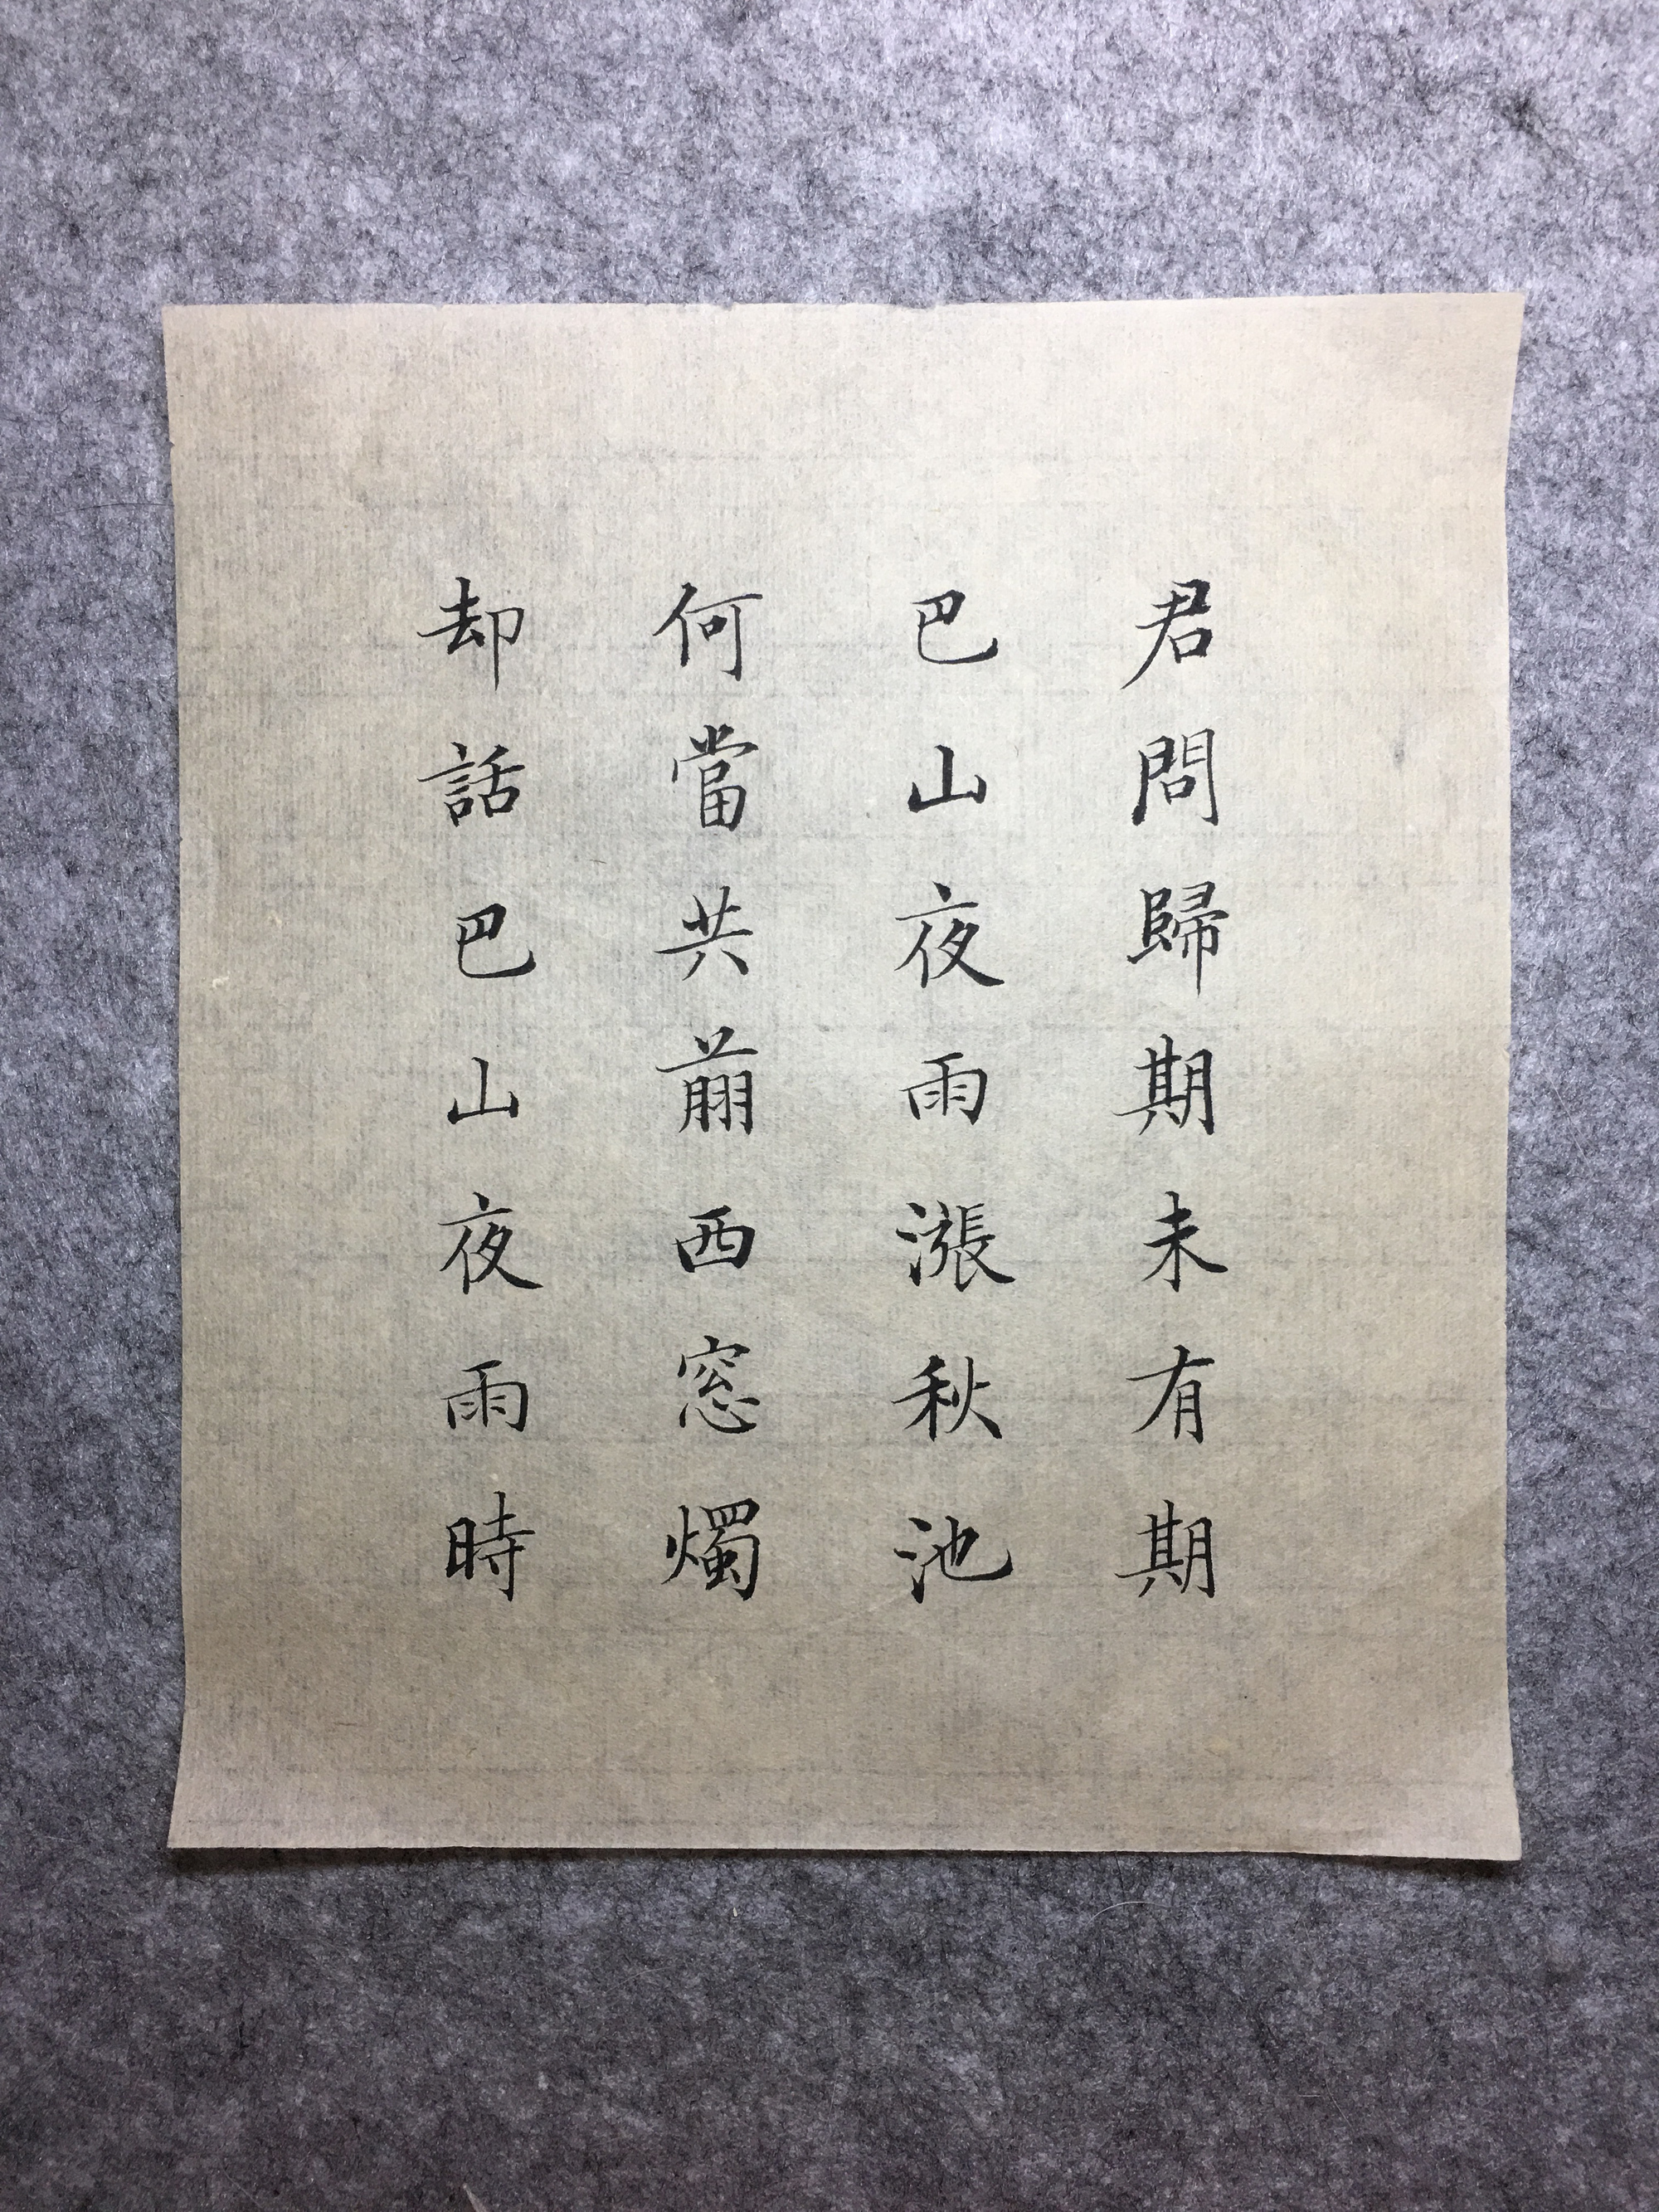 君問歸期未有期
巴山夜雨漲秋池
何當共翦西窓燭
却話巴山夜雨時